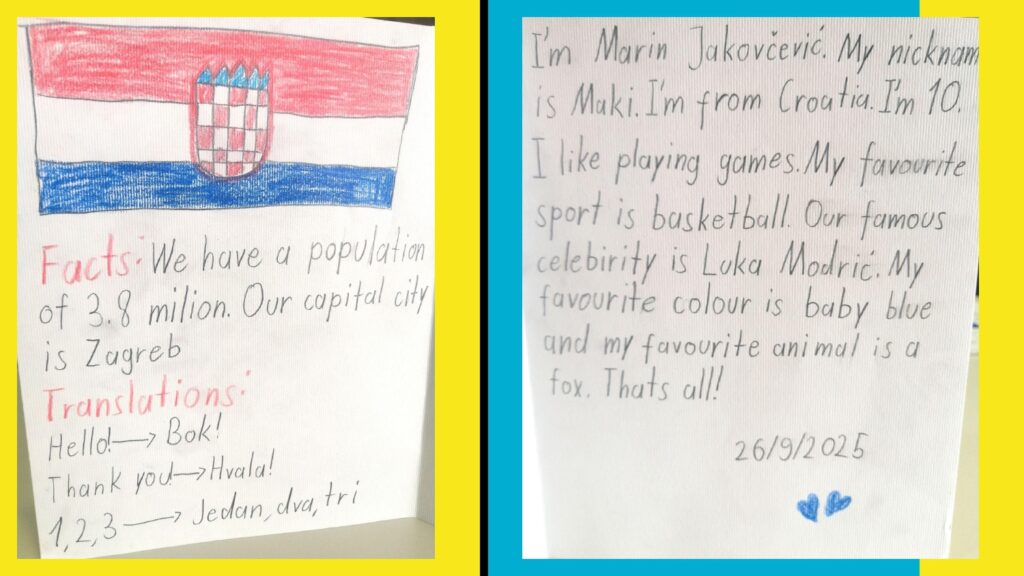 Facts: We have a population
of 3.8 milion. Our capital city
is Zagreb
Translations:
Hello! → Bok!
Thank you → Hvala!
1, 2, 3 → Jedan, dva, tri
I'm Marin Jakovčević. My nicknam
is Maki. I'm from Croatia. I'm 10.
I like playing games. My favourite
sport is basketball. Our famous
celebirity is Luka Modrić. My
favourite colour is baby blue
and my favourite animal is a
fox. Thats all!
26/9/2025